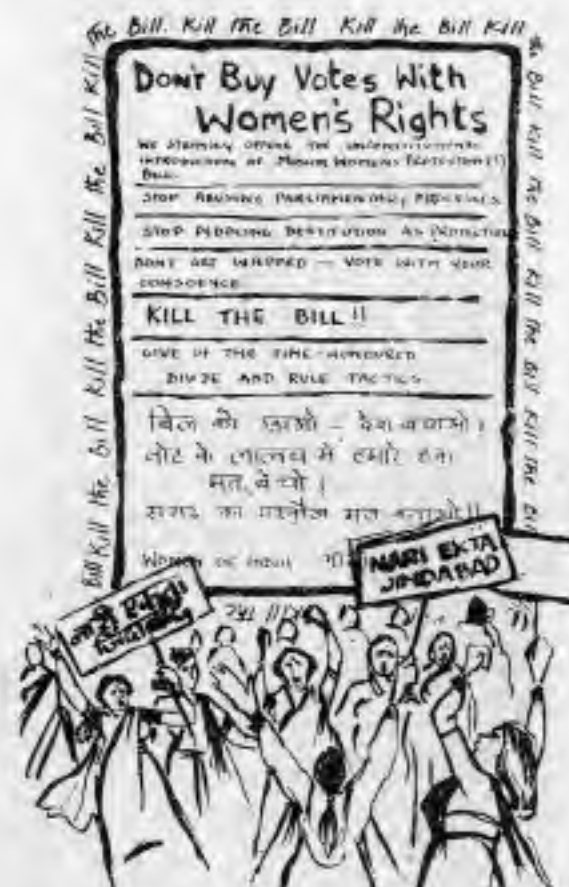 the Bill. Kill the Bill Kill the Bill Kill
the Bill Kill the Bill Kill the Bill Kill the Bill
Bill Kill the Bill Kill the Bill Kill the Bill Kill
DON'T BUY VOTES WITH
WOMEN'S RIGHTS
WE STRONGLY OPPOSE THE UNCONSTITUTIONAL
INTRODUCTION OF MUSLIM WOMENS PROTECTION (!)
BILL.
STOP ABUSING PARLIAMENTARY
STOP PEDDLING DESTITUTION AS PROTECTION
DONT GET WHIPPED — VOTE WITH YOUR
CONSCIENCE
KILL THE BILL !!
GIVE UP THE TIME-HONOURED
DIVIDE AND RULE TACTICS
बिल को - देश
वोट के लालच में हमारे हक
मत बेचो ।
का मत बनाओ !!
WOMEN OF INDIA
NARI EKTA
JINDABAD